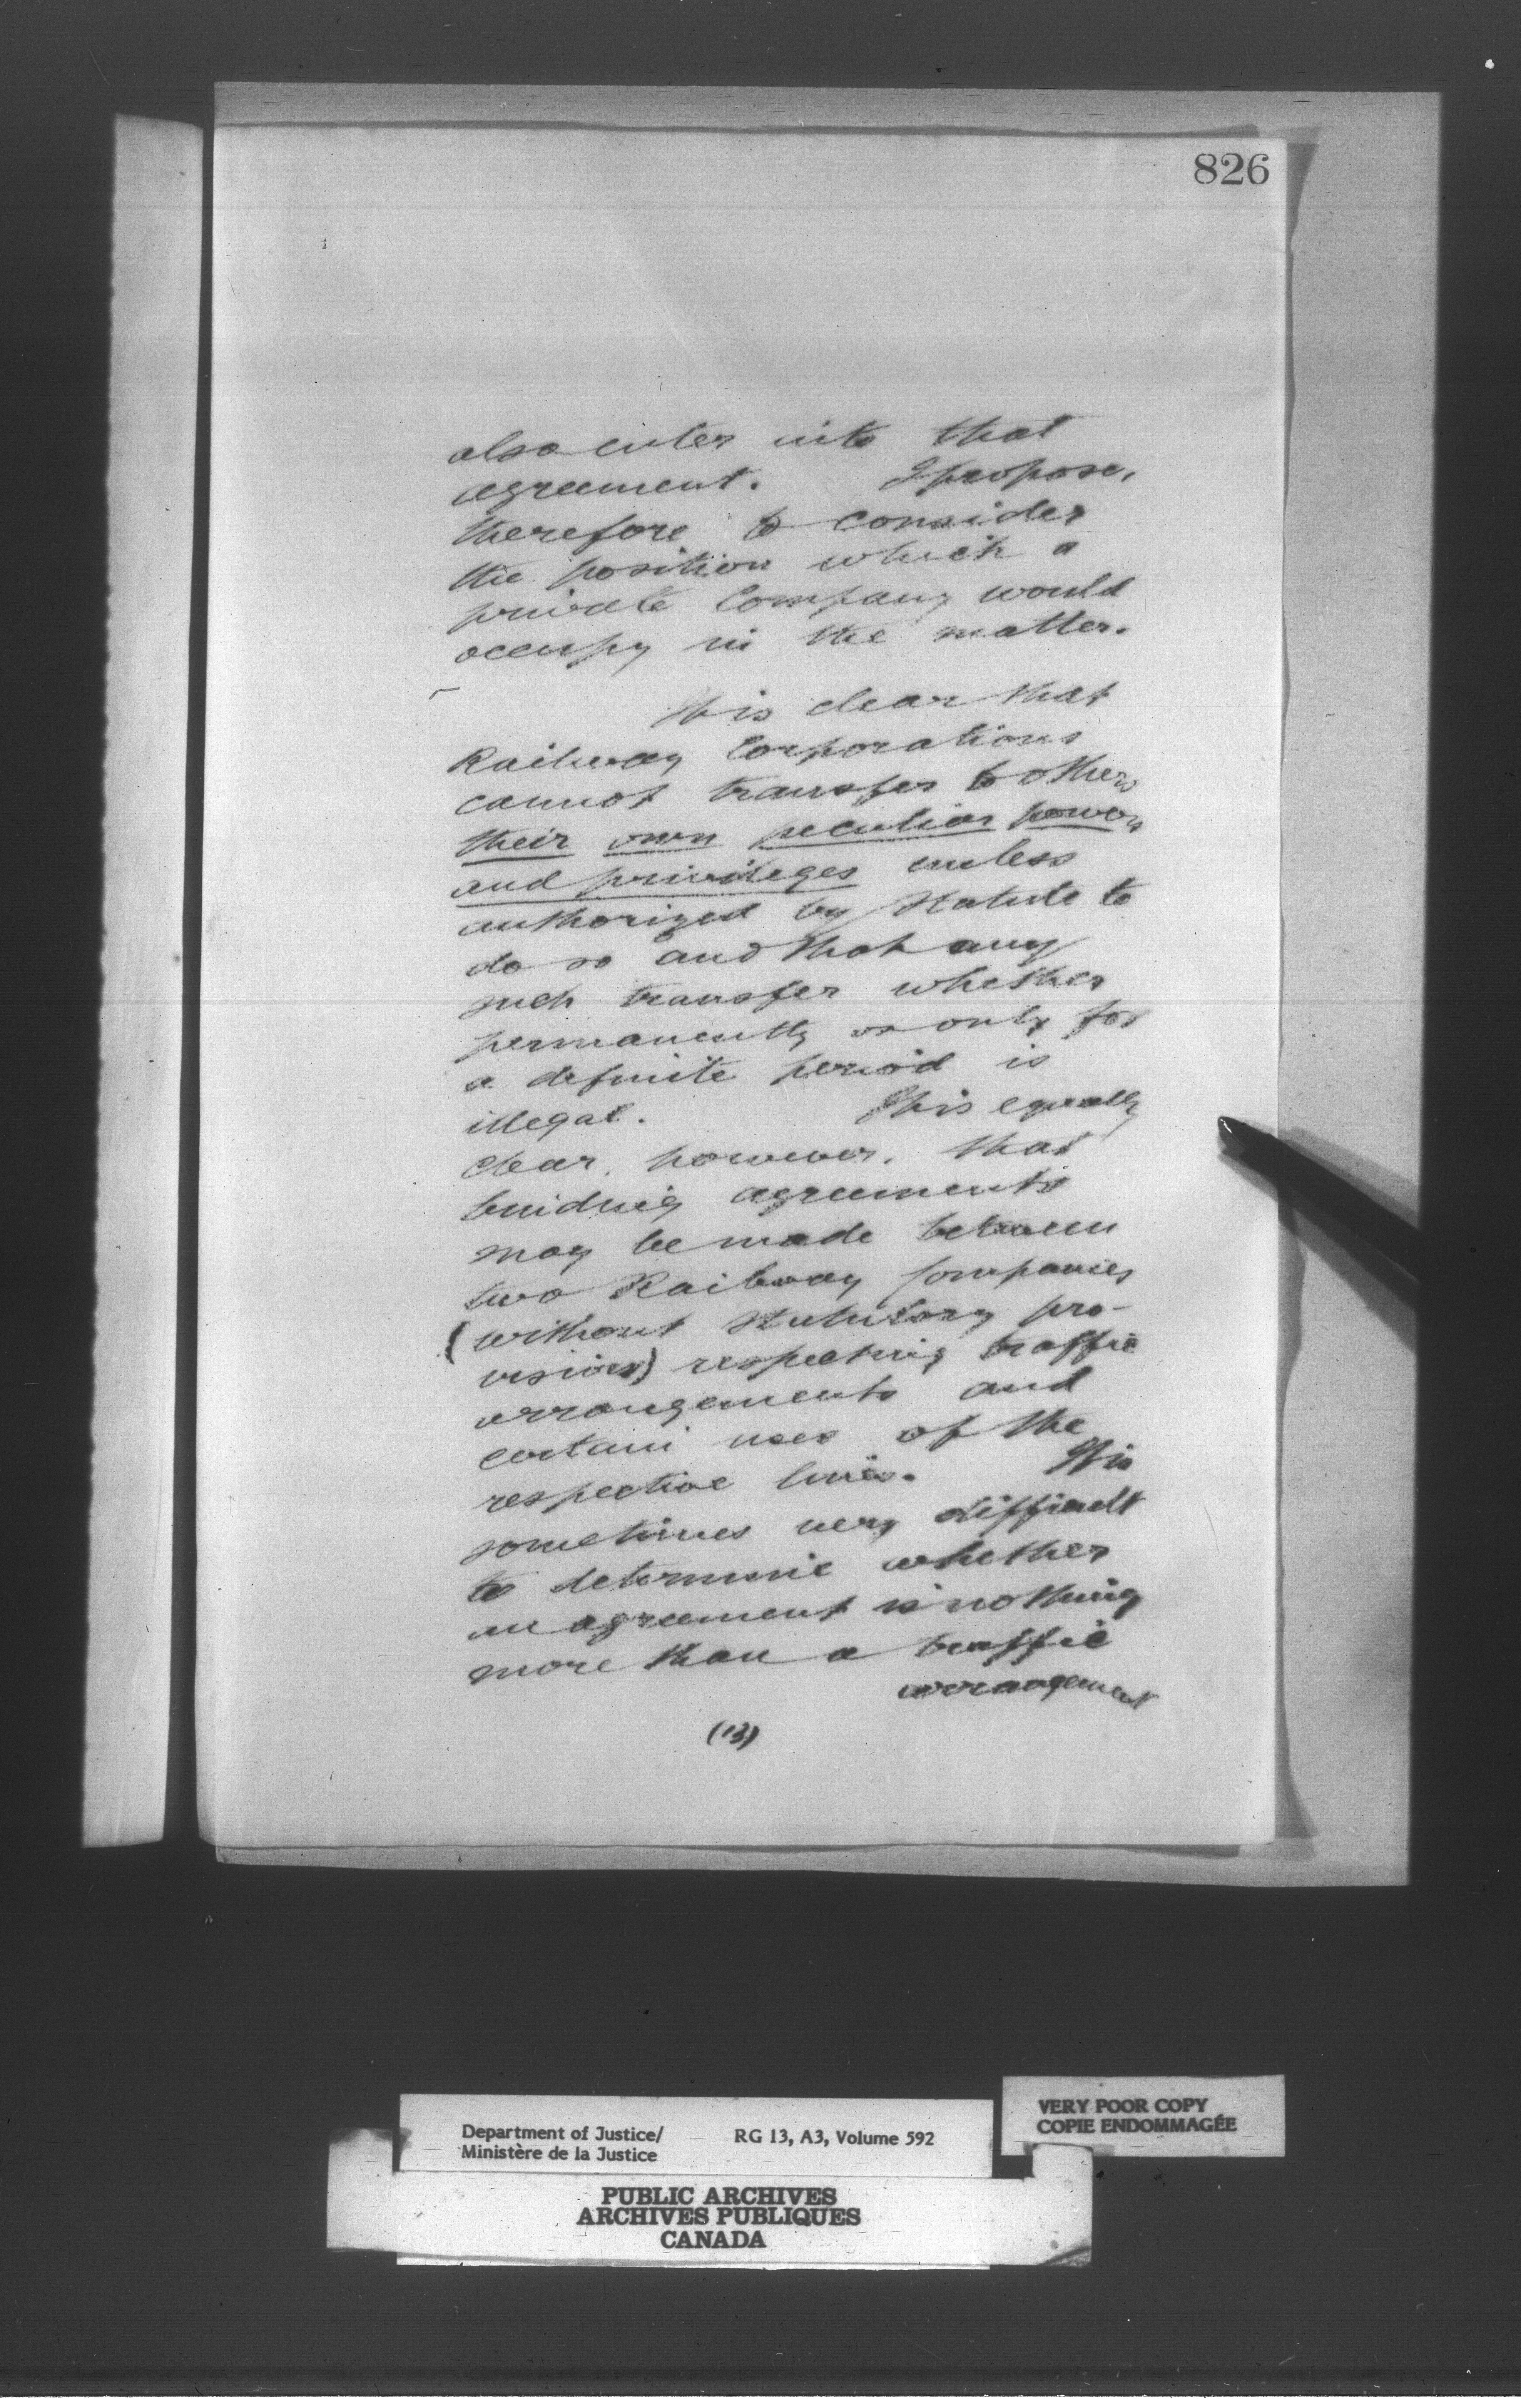 826
also enter into that
agreement. I propose,
therefore to consider
the position which a
private Company would
occupy in the matter.
It is clear that
Railway Corporations
cannot transfer to others
their own peculiar powers
and privileges unless
authorized by Statute to
do so and that any
such transfer whether
permanently or only for
a definite period is
illegal. It is equally
clear, however, that
binding agreements
may be made between
two Railway Companies
(without statutory pro-
visions) respecting traffic
arrangements and
certain uses of the
respective lines. It is
sometimes very difficult
to determine whether
an agreement is nothing
more than a traffic
arrangement
(13)
VERY POOR COPY
COPIE ENDOMMAGÉE
Department of Justice/ RG 13, A3, Volume 592
Ministère de la Justice
PUBLIC ARCHIVES
ARCHIVES PUBLIQUES
CANADA